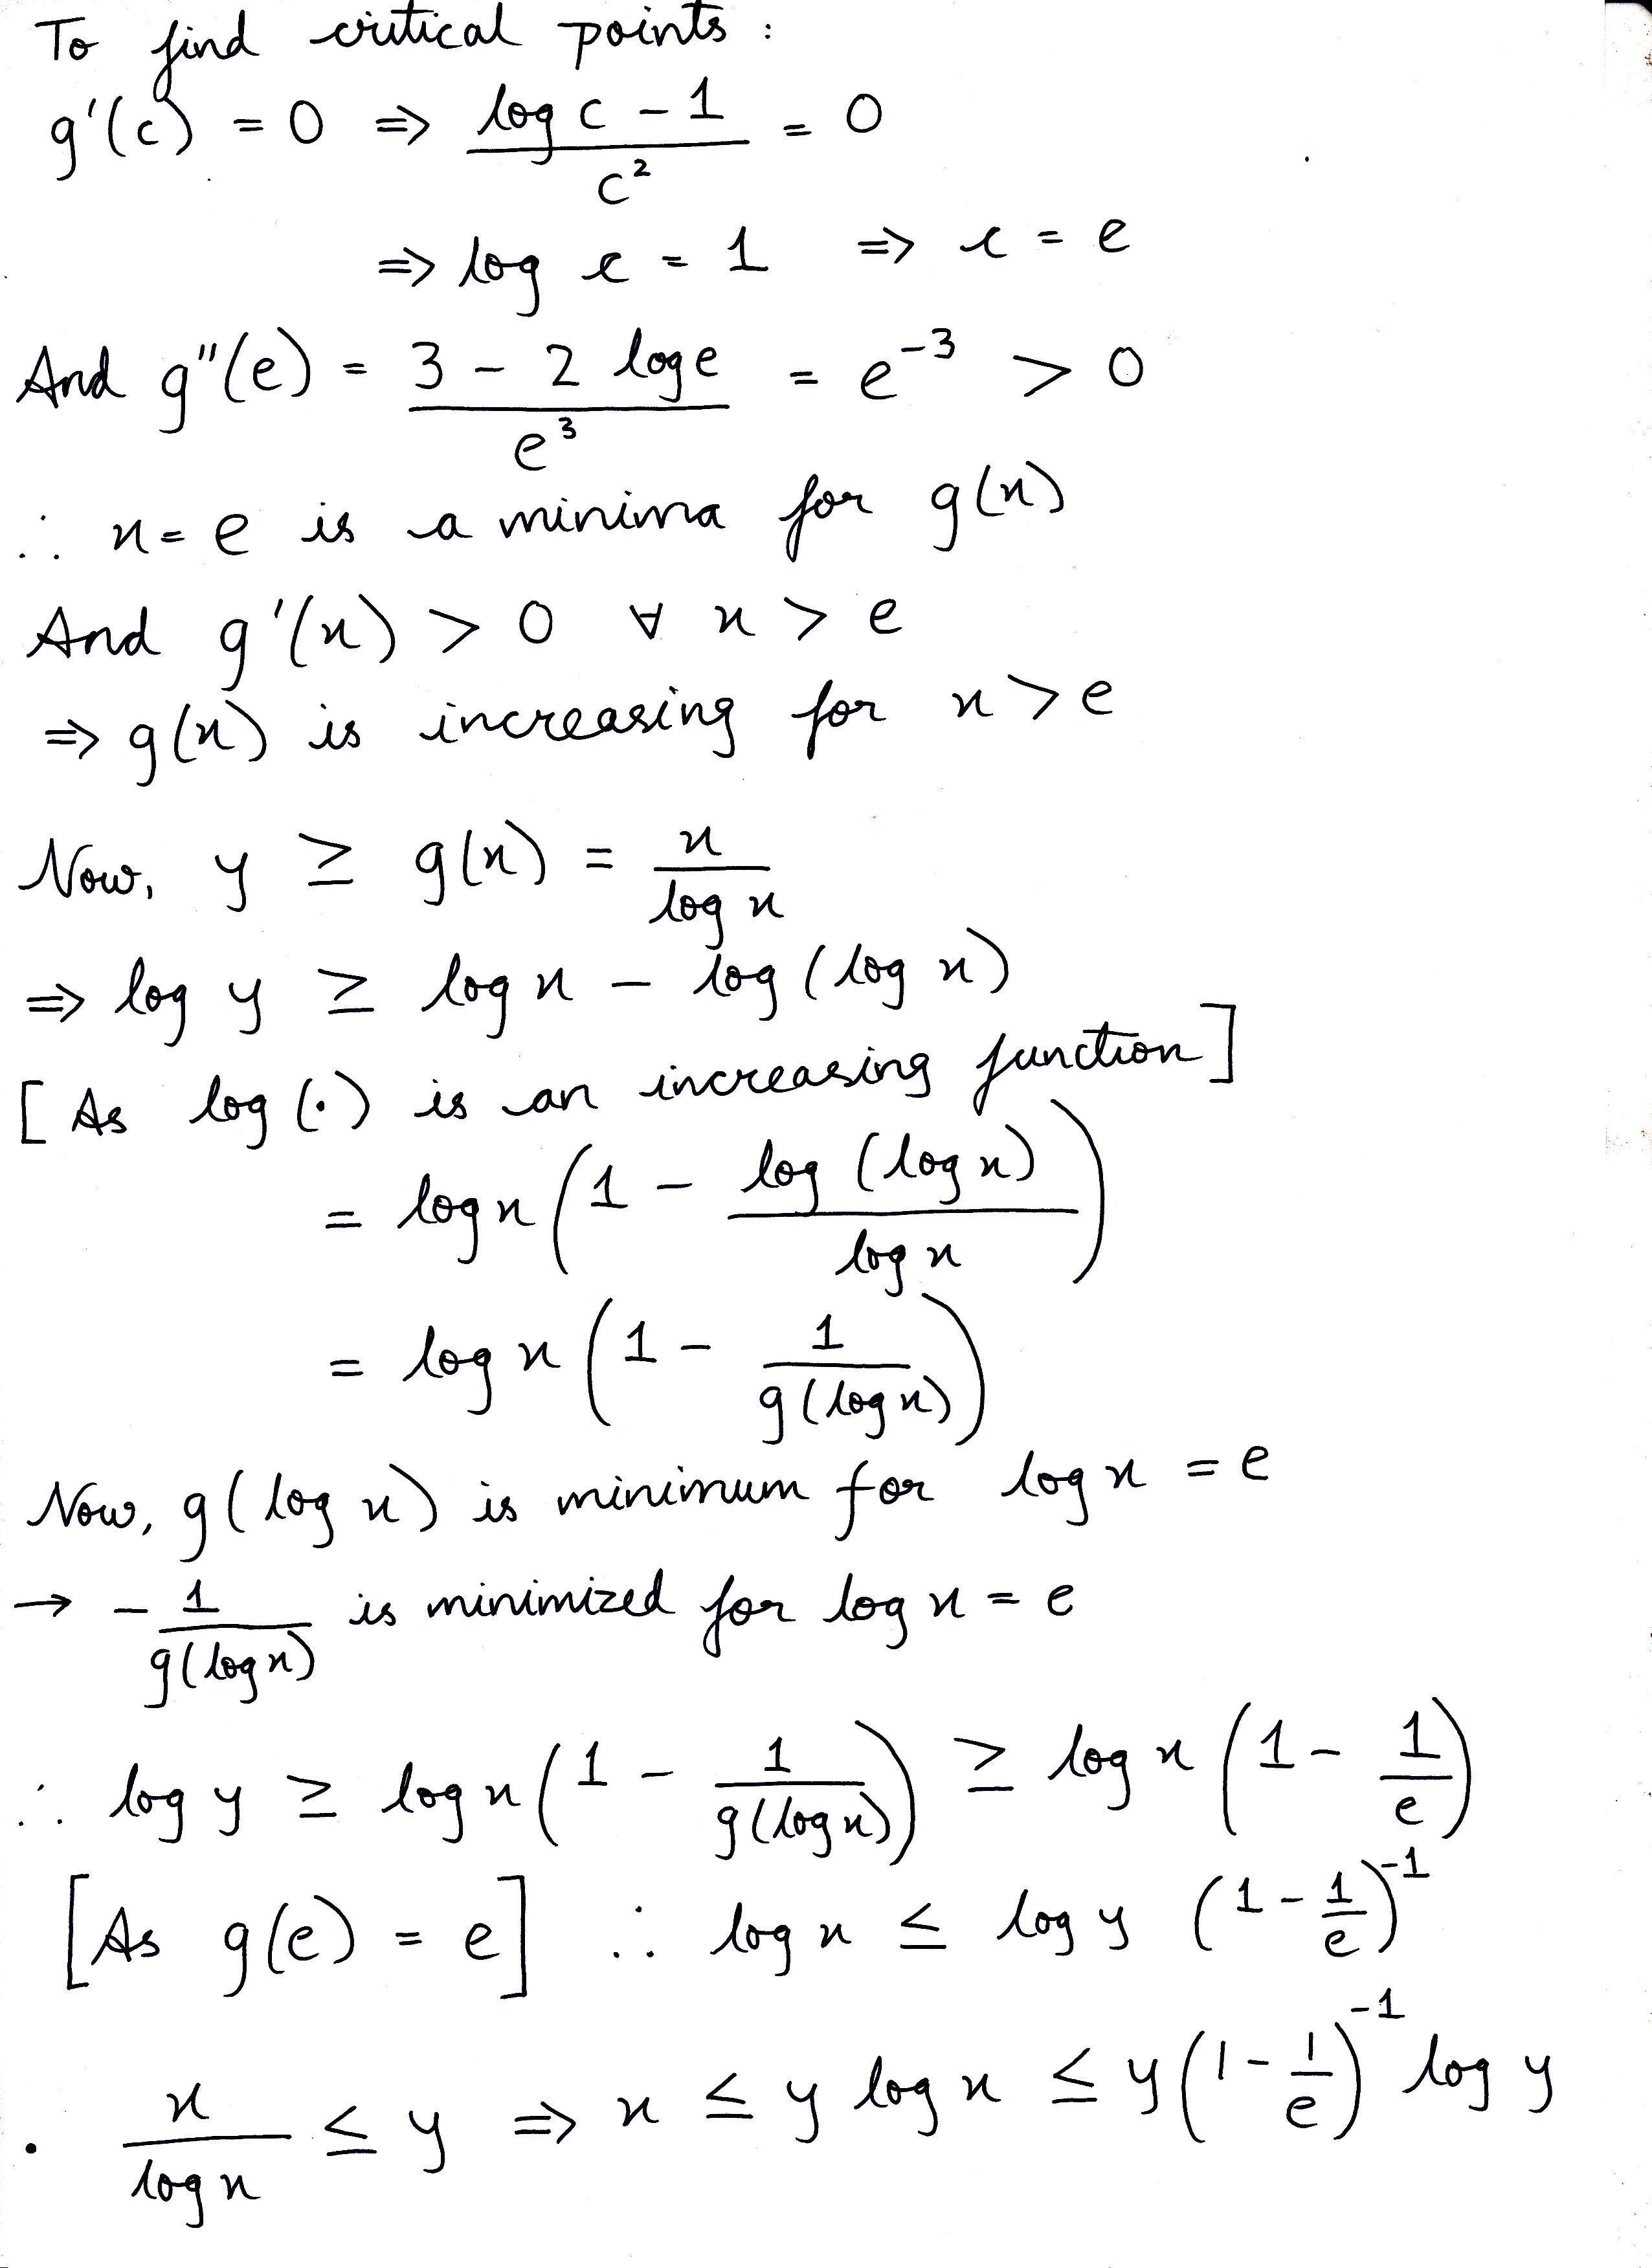 To find critical points :
g'(c) = 0 ⇒ (log c - 1)/c² = 0
⇒ log c = 1 ⇒ c = e
And g''(e) = (3 - 2 log e)/e³ = e⁻³ > 0
∴ x = e is a minima for g(x)
And g'(x) > 0 ∀ x > e
⇒ g(x) is increasing for x > e
Now, y ≥ g(x) = x/log x
⇒ log y ≥ log x - log (log x)
[As log (·) is an increasing function]
= log x (1 - log (log x)/log x)
= log x (1 - 1/g(log x))
Now, g(log x) is minimum for log x = e
→ - 1/g(log x) is minimized for log x = e
∴ log y ≥ log x (1 - 1/g(log x)) ≥ log x (1 - 1/e)
[As g(e) = e] ∴ log x ≤ log y (1 - 1/e)⁻¹
· x/log x ≤ y ⇒ x ≤ y log x ≤ y (1 - 1/e)⁻¹ log y